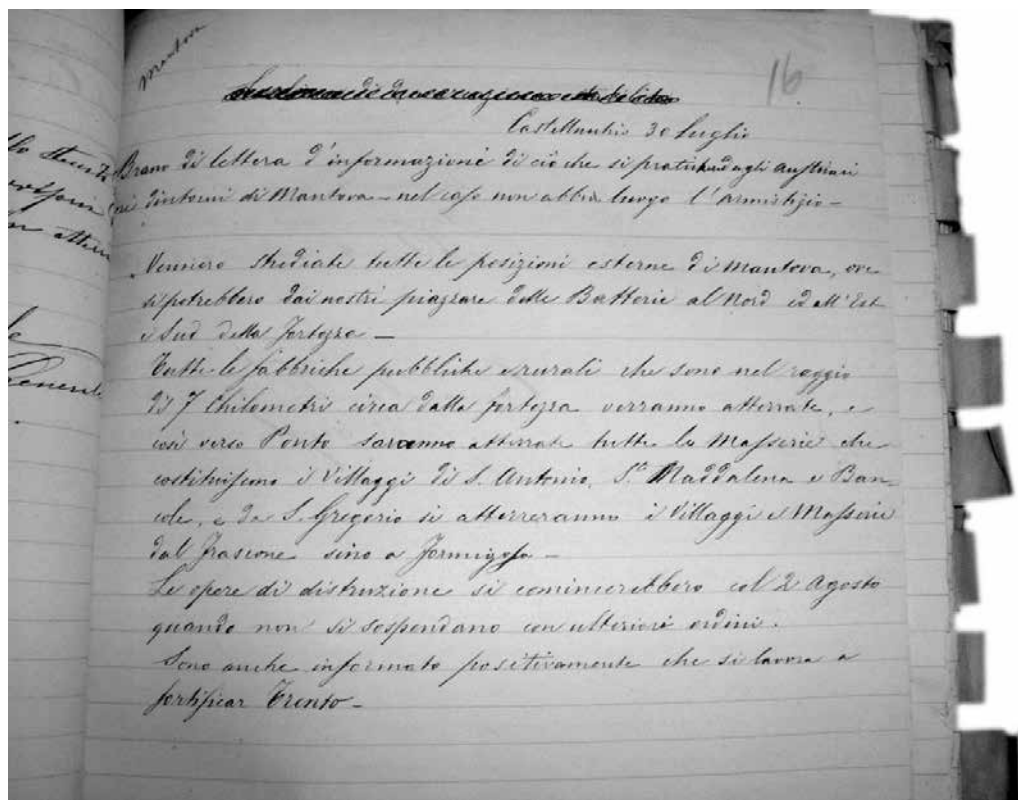 Mantova
16
30 Luglio
Brano di lettera d'informazione di ciò che si pratica dagli austriaci
dintorni di Mantova - nel caso non abbia luogo l'Armistizio -
Vennero studiate tutte le posizioni esterne di Mantova, ove
si potrebbero dai nostri piazzare delle Batterie al Nord ed all'Est
e Sud della fortezza -
Tutte le fabbriche pubbliche e rurali che sono nel raggio
di 7 Chilometri circa dalla fortezza verranno atterrate, e
così verso Ponto saranno atterrate tutte la Masserie che
costituiscono i Villaggi di S. Antonio, S.a Maddalena e Ban-
cole, e da S. Gregorio si atterreranno i Villaggi e Masserie
dal Frascone sino a Formigosa -
Le opere di distruzione si comincerebbero col 2 Agosto
quando non si sospendano con ulteriori ordini.
Sono anche informato positivamente che si lavora a
fortificar Trento -